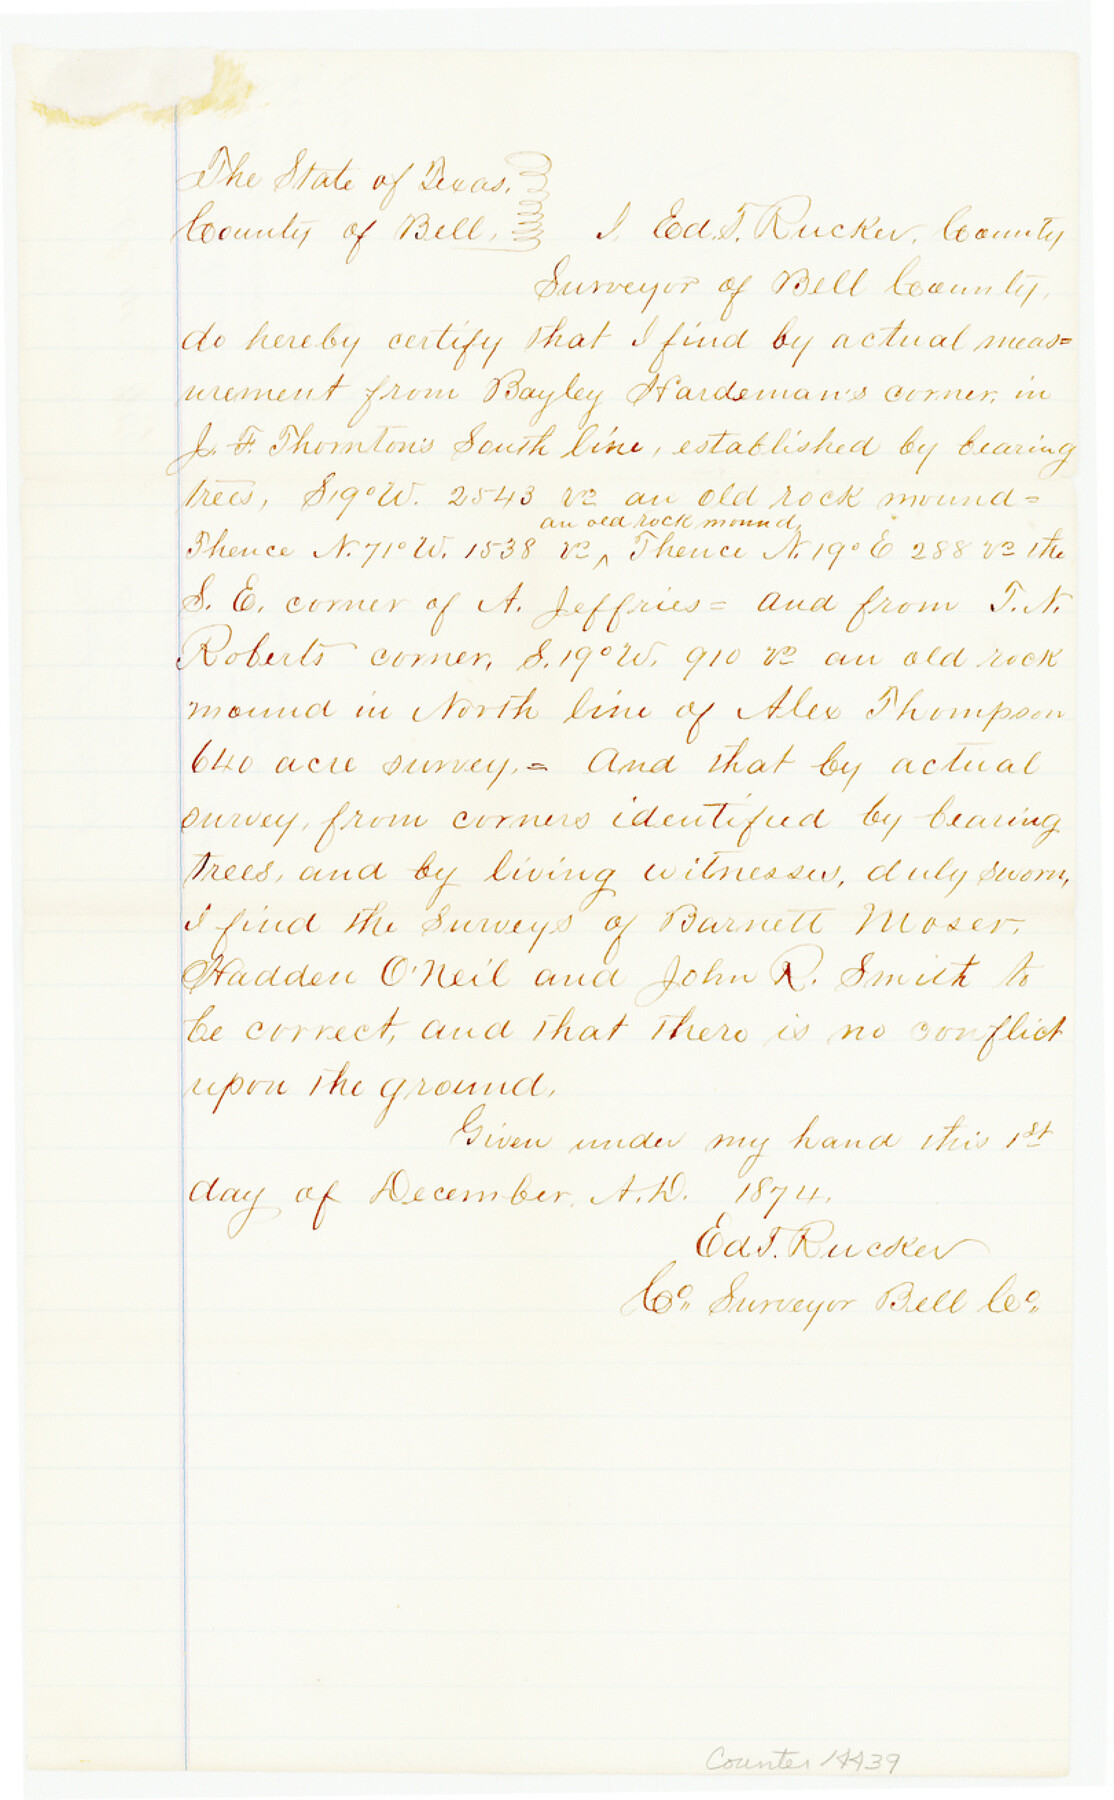 The State of Texas,
County of Bell,   I, Ed. T. Rucker, County
Surveyor of Bell County,
do hereby certify that I find by actual meas=
urement from Bayley Hardeman's corner, in
J. F. Thornton's South line, established by bearing
trees, S. 19° W. 2543 vs an old rock mound=
an old rock mound,
Thence N. 71° W. 1538 vs ^ Thence N. 19° E 288 vs the
S. E. corner of A. Jeffries= and from T. N.
Roberts corner, S. 19° W. 910 vs an old rock
mound in North line of Alex Thompson
640 acre survey.= And that by actual
survey, from corners identified by bearing
trees, and by living witnesses, duly sworn,
I find the Surveys of Barnett Moser,
Hadden O'Neil and John R. Smith to
be correct, and that there is no conflict
upon the ground.
Given under my hand this 1st
day of December, A.D. 1874.
Ed. T. Rucker
Co. Surveyor Bell Co.
Counter 14439